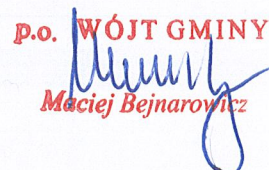 p.o. WÓJT GMINY
Maciej Bejnarowicz